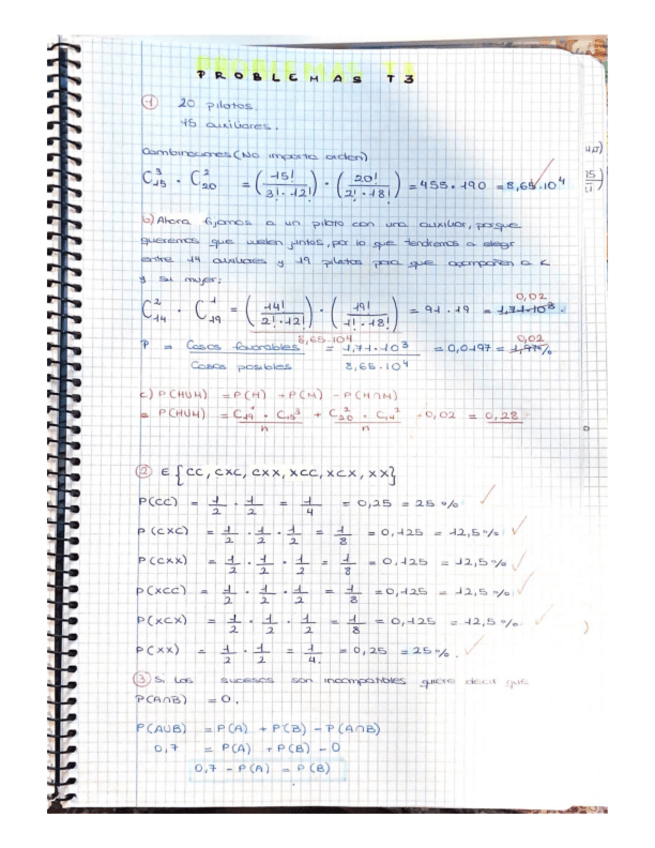 PROBLEMAS T3
① 20 pilotos.
15 auxiliares.
Combinaciones (No importa orden)
C₁₅³ · C₂₀² = (15! / 3! · 12!) · (20! / 2! · 18!) = 455 · 190 = 8,65 · 10⁴
b) Ahora fijamos a un piloto con una auxiliar, porque
queremos que vuelen juntos, por lo que tendremos a elegir
entre 14 auxiliares y 19 pilotos para que acompañen a
y su mujer:
C₁₄² · C₁₉¹ = (14! / 2! · 12!) · (19! / 1! · 18!) = 91 · 19 = 1,71 · 10³ 0,02
8,65 · 10⁴
P = Casos favorables / Casos posibles = 1,71 · 10³ / 8,65 · 10⁴ = 0,0197 = 1,97% 0,02
c) P(HUM) = P(H) + P(M) - P(H∩M)
= P(HUM) = C₁₉¹ · C₁₅³ / n + C₂₀² · C₁₄² / n - 0,02 = 0,28
② E {CC, CXC, CXX, XCC, XCX, XX}
P(CC) = 1/2 · 1/2 = 1/4 = 0,25 = 25%
P(CXC) = 1/2 · 1/2 · 1/2 = 1/8 = 0,125 = 12,5%
P(CXX) = 1/2 · 1/2 · 1/2 = 1/8 = 0,125 = 12,5%
P(XCC) = 1/2 · 1/2 · 1/2 = 1/8 = 0,125 = 12,5%
P(XCX) = 1/2 · 1/2 · 1/2 = 1/8 = 0,125 = 12,5%
P(XX) = 1/2 · 1/2 = 1/4. = 0,25 = 25%.
③ Si los sucesos son incompatibles quiere decir que
P(A∩B) = 0.
P(AUB) = P(A) + P(B) - P(A∩B)
0,7 = P(A) + P(B) - 0
0,7 - P(A) = P(B)